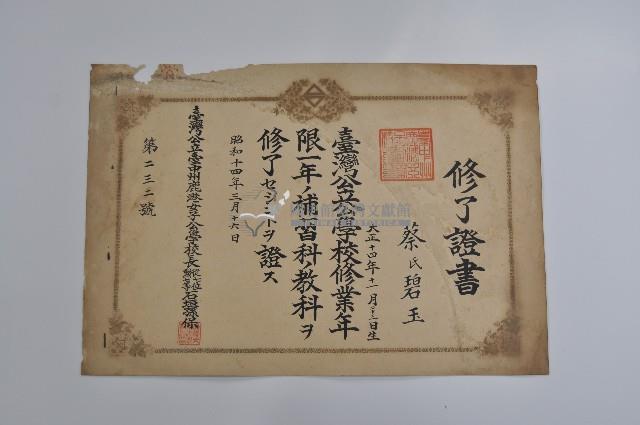 修了證書
蔡氏碧玉
大正十四年十一月 日生
臺灣公立公學校修業年
限一年ノ補習科ノ教科ヲ
修了セシコトヲ證ス
昭和十四年三月十六日
臺灣公立臺中州鹿港女子公學校長
第二三二號
文獻館